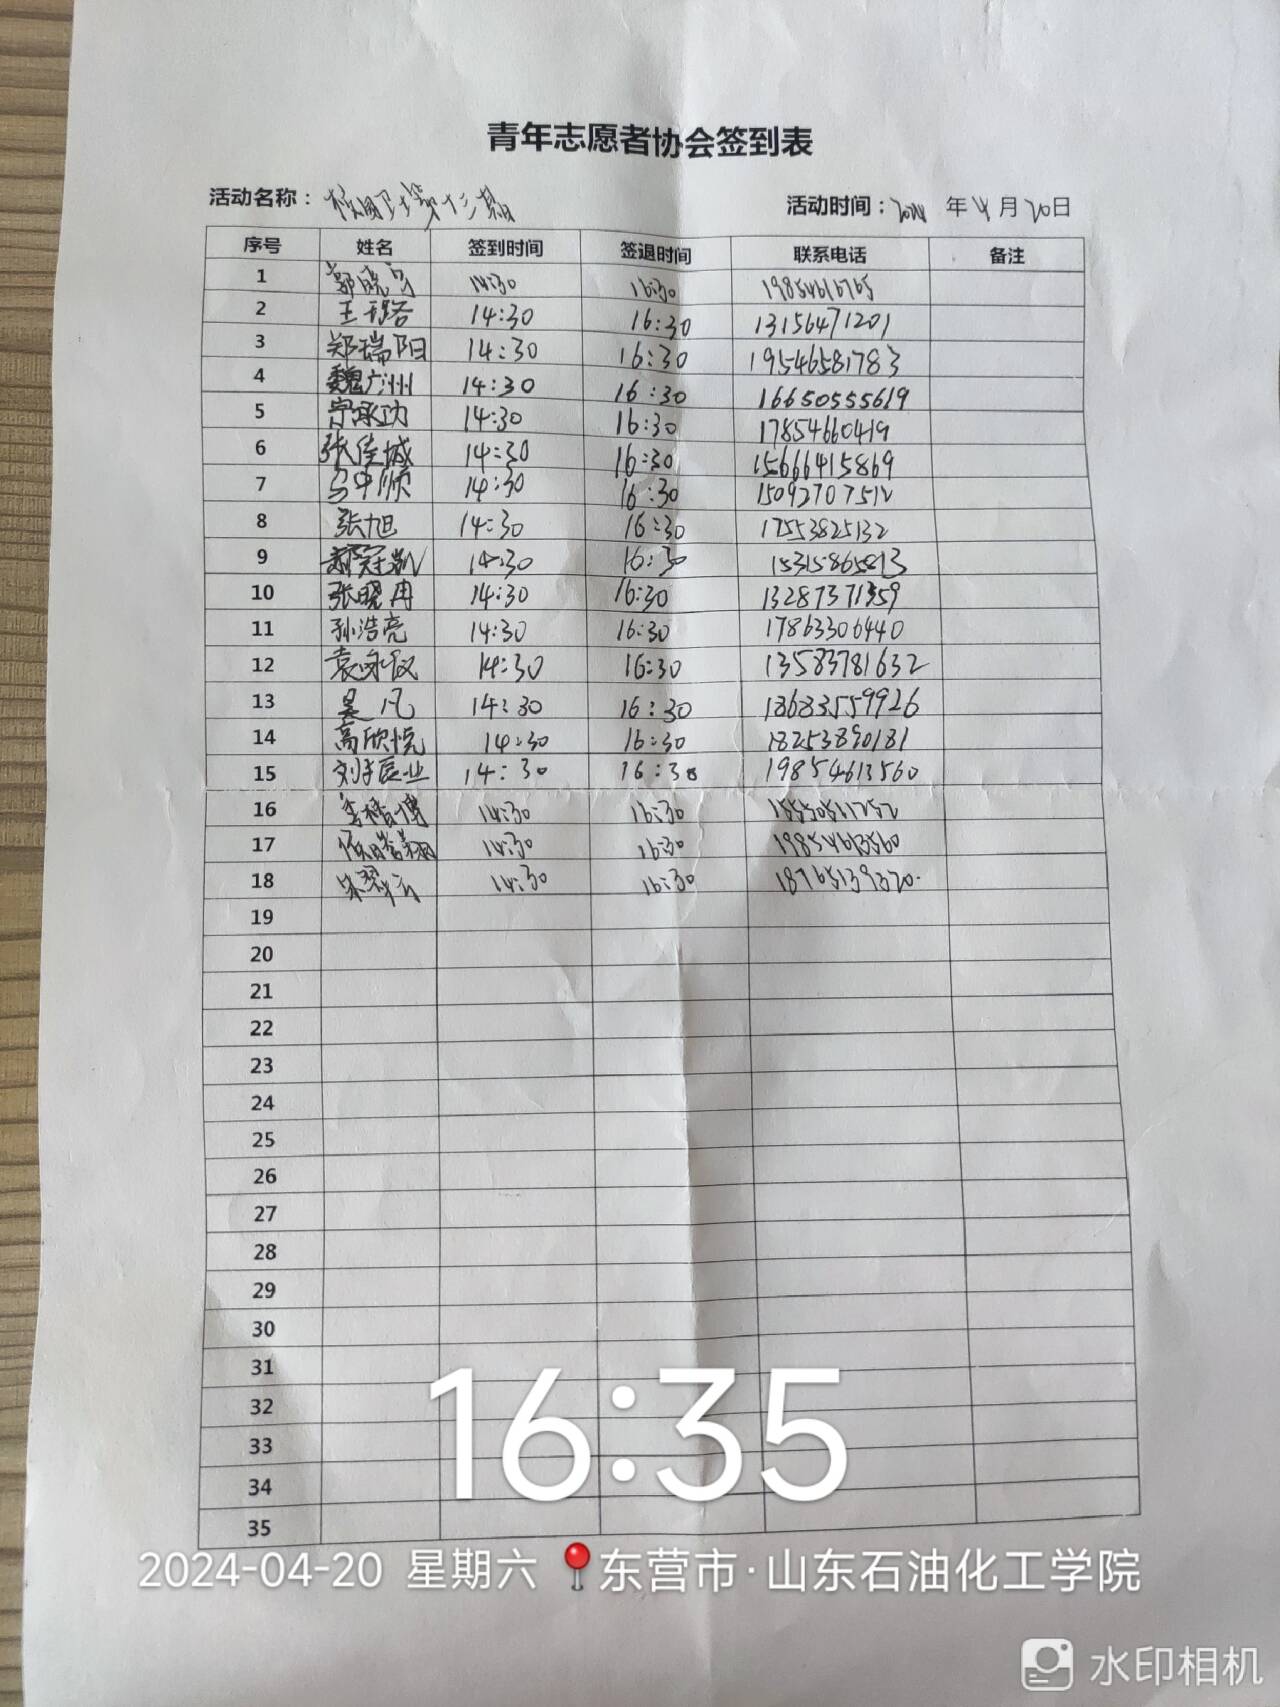 青年志愿者协会签到表
活动名称： 校园卫士第十三期 活动时间：2024 年 4 月 20 日
序号 姓名 签到时间 签退时间 联系电话 备注
1 14:30 16:30 19854616765
2 14:30 16:30 13156471201
3 郑瑞阳 14:30 16:30 19546581783
4 魏广州 14:30 16:30 16650555619
5 14:30 16:30 17854660419
6 张佳城 14:30 16:30 15666415869
7 马中顺 14:30 16:30 15092707512
8 张旭 14:30 16:30 17553825132
9 14:30 16:30
10 张晓冉 14:30 16:30 13287371359
11 孙浩亮 14:30 16:30 17863306440
12 14:30 16:30 13583781632
13 吴凡 14:30 16:30 18683559926
14 高欣悦 14:30 16:30 18253890181
15 14:30 16:30 19854613560
16 14:30 16:30
17 14:30 16:30 19854613560
18 14:30 16:30 18765139320.
19
20
21
22
23
24
25
26
27
28
29
30
31
32
33
34
35
16:35
2024-04-20 星期六 东营市·山东石油化工学院
水印相机